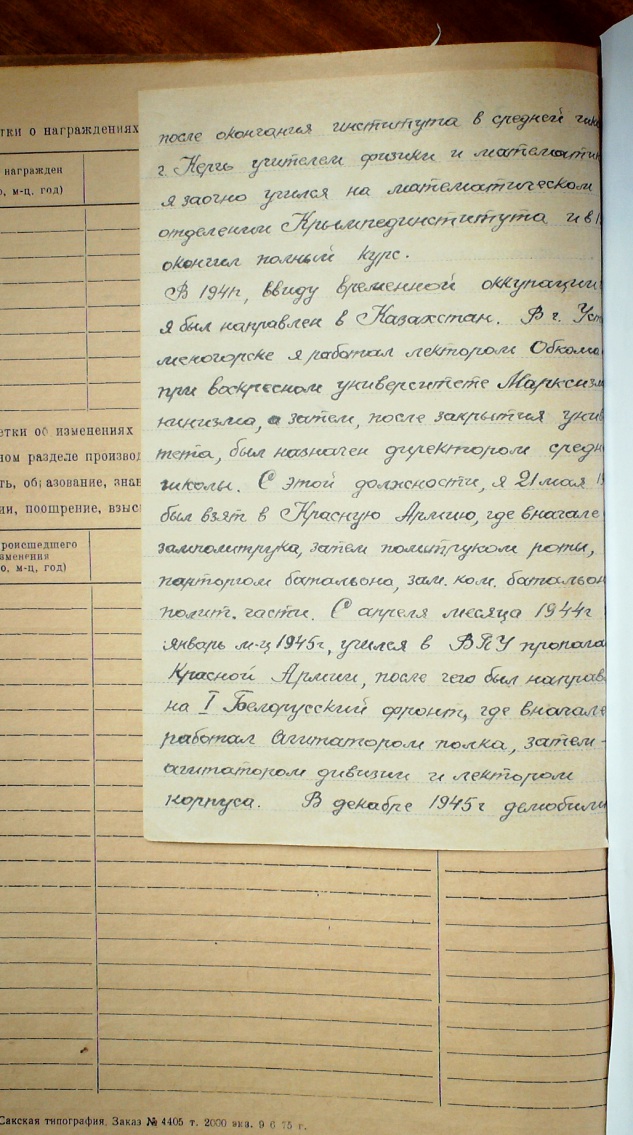 тки о награждениях
награжден
о, м-ц, год)
етки об изменениях
ном разделе производ
ть, образование, знан
ии, поощрение, взыс
роисшедшего
зменения
о, м-ц, год)
после окончания института в средней шко
г. Керчь учителем физики и математик
я заочно учился на математическом
отделении Крымпединститута и в 1
окончил полный курс.
В 1941г, ввиду временной оккупации
я был направлен в Казахстан. В г. Уст
меногорске я работал лектором Обкома
при воскресном университете Марксизм
нинизма, а затем, после закрытия унив
тета, был назначен директором средн
школы. С этой должности, я 21 мая 19
был взят в Красную Армию, где вначале
замполитрука, затем политруком роты,
парторгом батальона, зам. ком. батальон
полит. части. С апреля месяца 1944г
январь м-ц 1945г, учился в ВПУ пропага
Красной Армии, после чего был направ
на I Белорусский фронт, где вначале
работал агитатором полка, затем -
агитатором дивизии и лектором
корпуса. В декабре 1945г демобили
Сакская типография. Заказ № 4405 т. 2000 экз. 9 6 75 г.